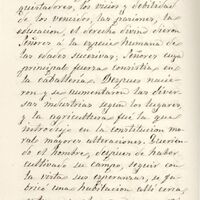 quistadores, los vicios y debilidad
de los vencidos, las pasiones, la
educacion, el derecho divino dieron
Señores á la especie humana de
las edades sucesivas; Señores cuya
principal fuerza consistia en
la caballeria. Despues nacie-
ron y se aumentaron las diver-
sas industrias segun los lugares,
y la agricultura fué la que
introdujo en la constitucion mo-
ral mayores alteraciones. Querien-
do el hombre, despues de haber
cultivado su campo, seguir con
la vista sus esperanzas, se fa-
bricó una habitacion alli cerca,